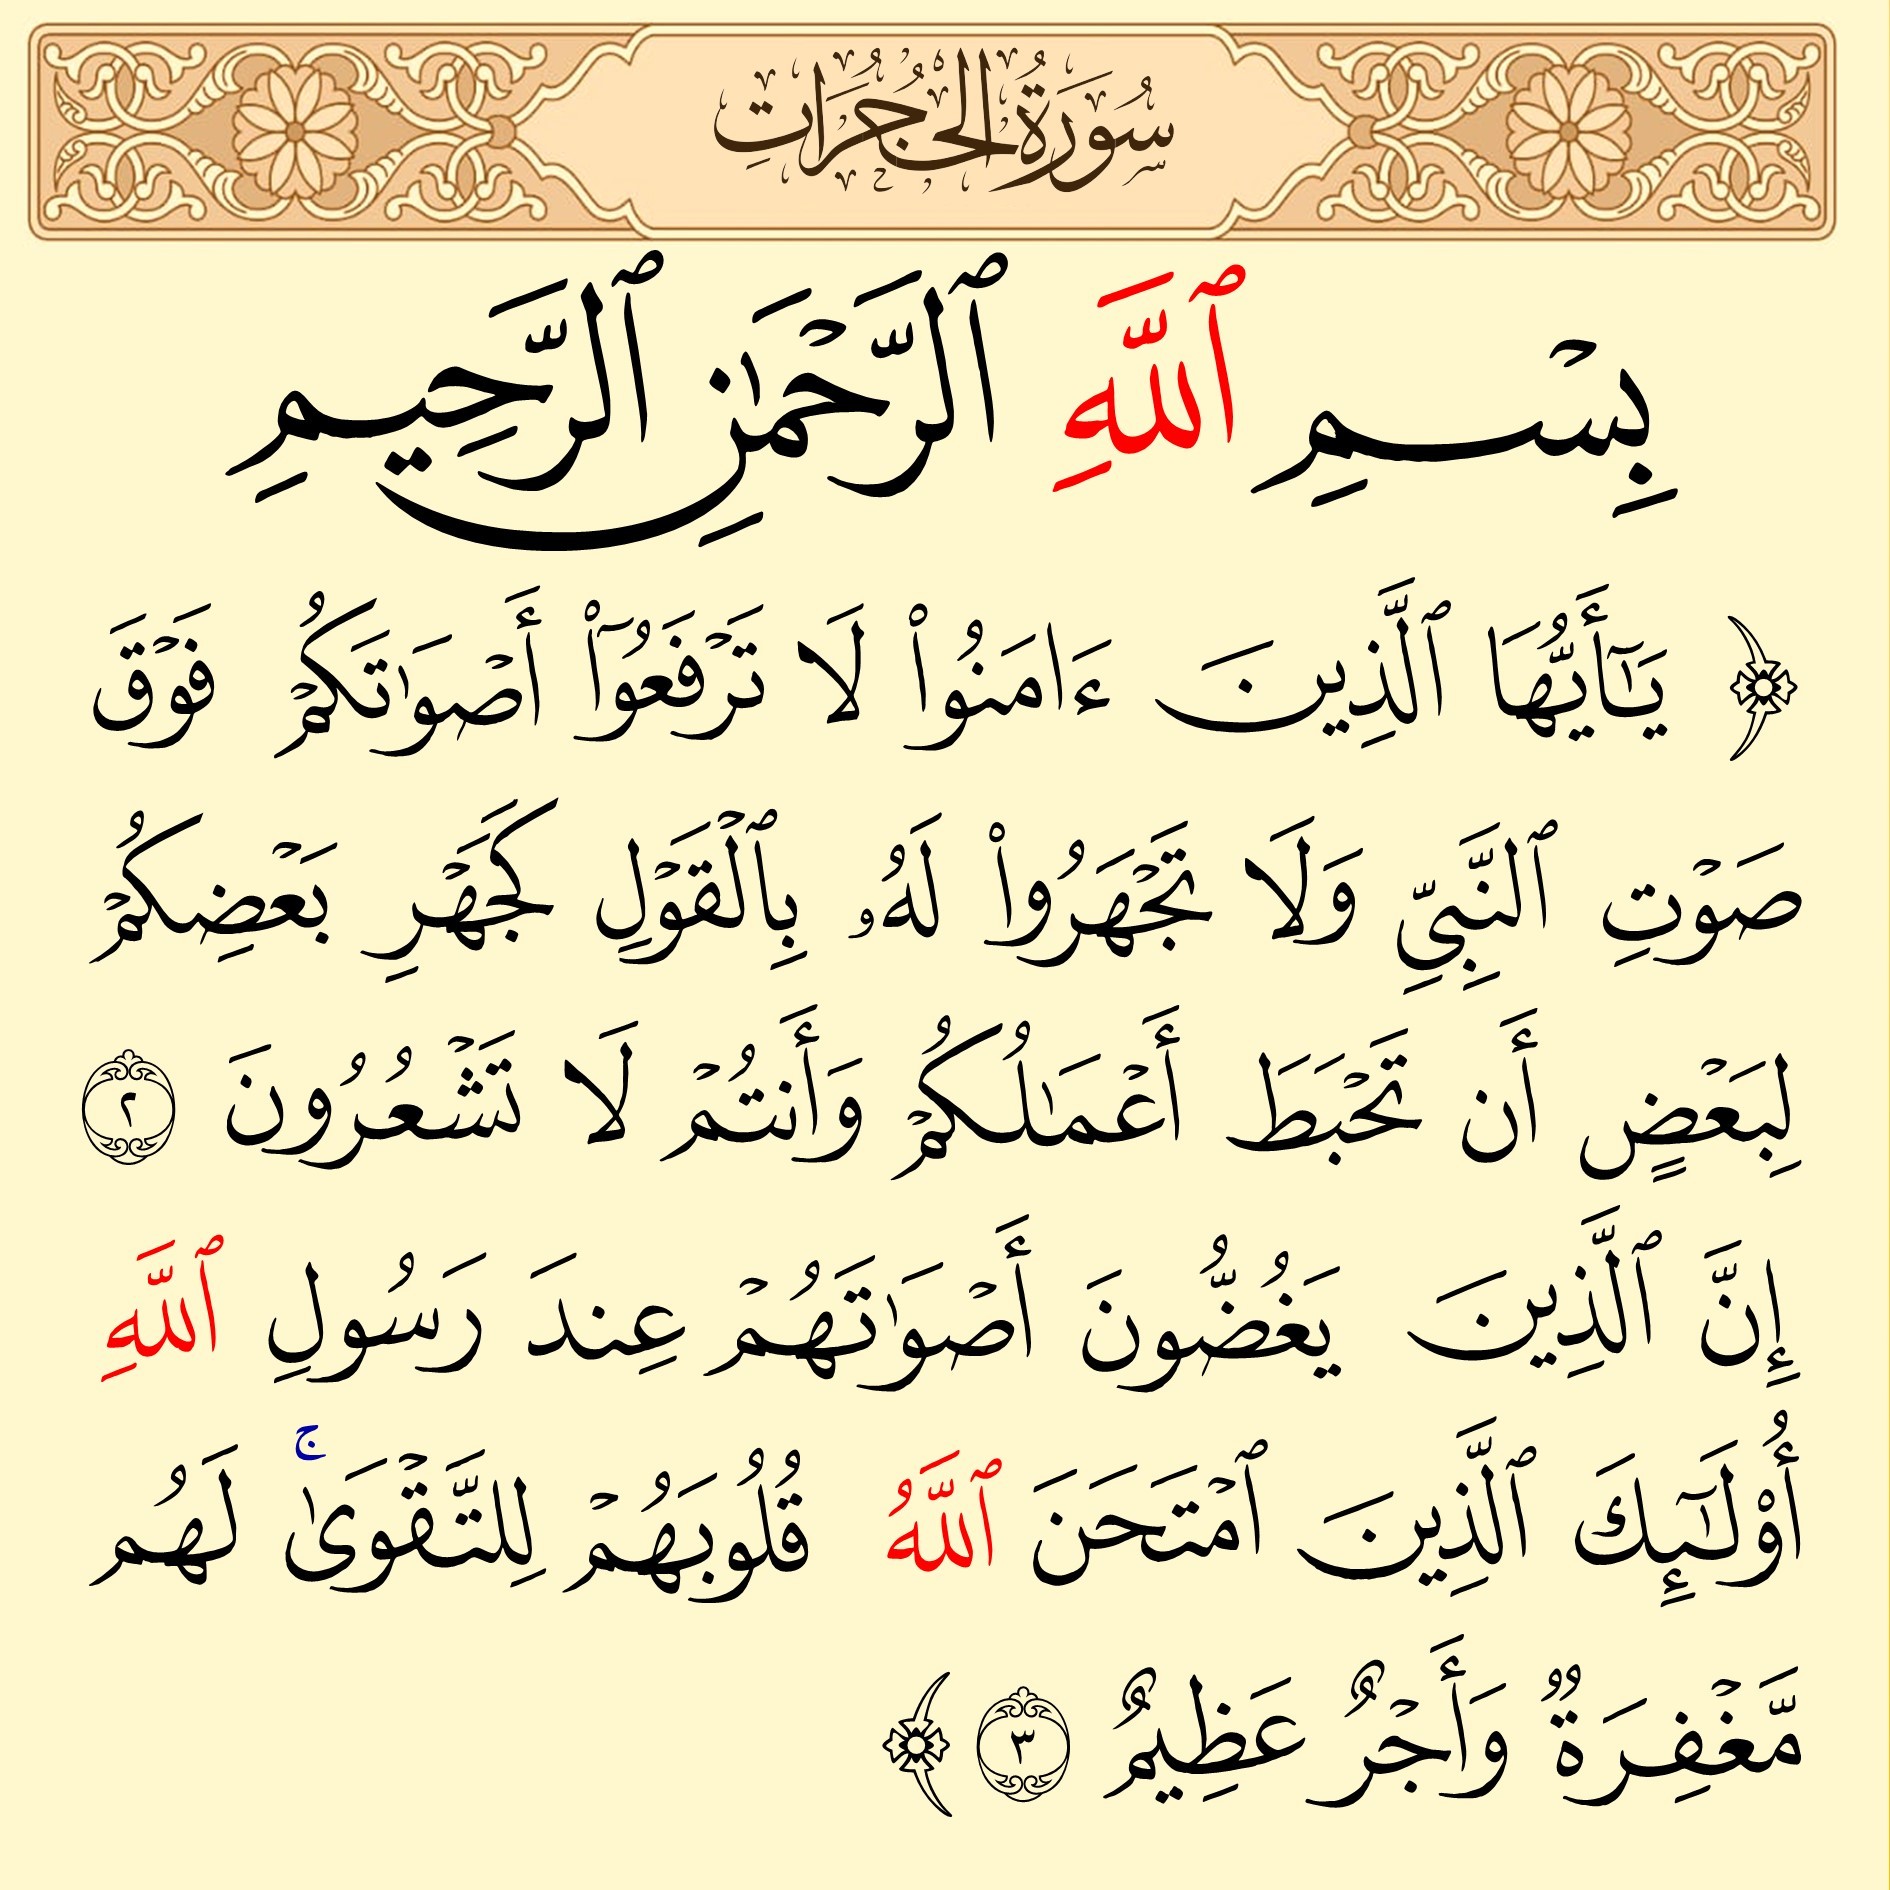 سُورَةُ الحُجُرَاتِ
بِسۡمِ ٱللَّهِ ٱلرَّحۡمَٰنِ ٱلرَّحِيمِ
﴿ يَٰٓأَيُّهَا ٱلَّذِينَ ءَامَنُواْ لَا تَرۡفَعُوٓاْ أَصۡوَٰتَكُمۡ فَوۡقَ
صَوۡتِ ٱلنَّبِيِّ وَلَا تَجۡهَرُواْ لَهُۥ بِٱلۡقَوۡلِ كَجَهۡرِ بَعۡضِكُمۡ
لِبَعۡضٍ أَن تَحۡبَطَ أَعۡمَٰلُكُمۡ وَأَنتُمۡ لَا تَشۡعُرُونَ ٢
إِنَّ ٱلَّذِينَ يَغُضُّونَ أَصۡوَٰتَهُمۡ عِندَ رَسُولِ ٱللَّهِ
أُوْلَٰٓئِكَ ٱلَّذِينَ ٱمۡتَحَنَ ٱللَّهُ قُلُوبَهُمۡ لِلتَّقۡوَىٰۚ لَهُم
مَّغۡفِرَةٞ وَأَجۡرٌ عَظِيمٌ ٣ ﴾